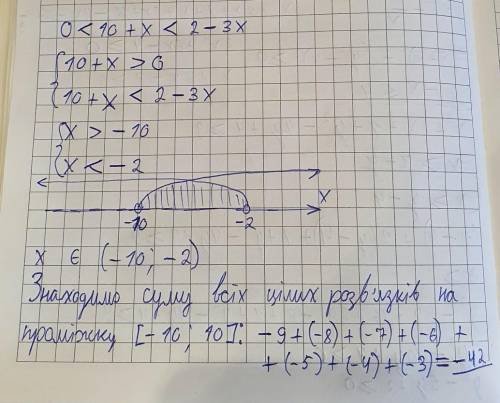 0 < 10 + x < 2 - 3x
{ 10 + x > 0
{ 10 + x < 2 - 3x
{ x > - 10
{ x < - 2
x
-10 -2
x є (-10; -2)
Знаходимо суму всіх цілих розв'язків на
проміжку [-10; 10]: -9 + (-8) + (-7) + (-6) +
+ (-5) + (-4) + (-3) = -42